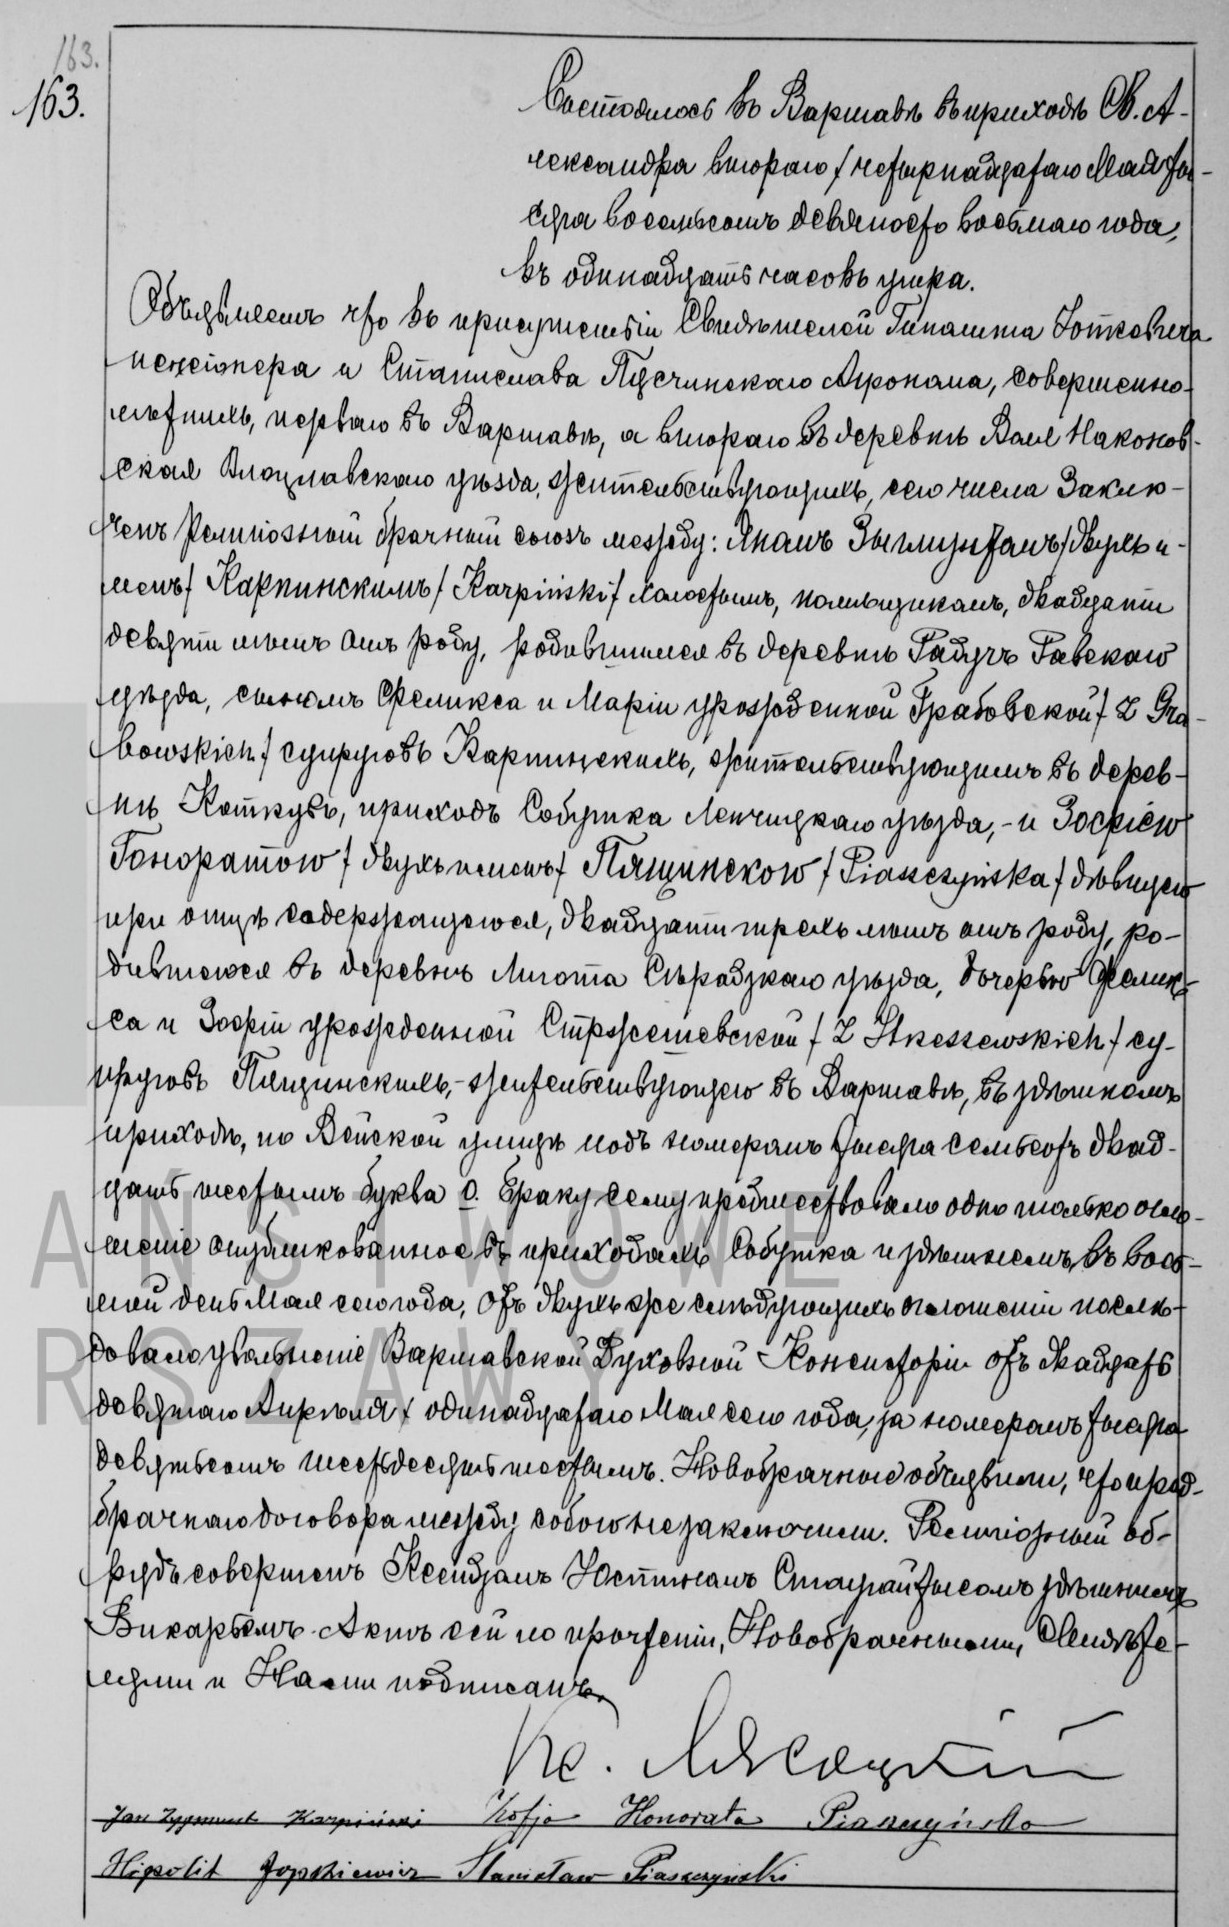 163.
163.
Состоялось въ Варшавѣ въ приходѣ Св. А-
лександра второго / четырнадцатаго Мая ты-
сяча восемьсотъ девяносто восьмаго года,
въ одинадцать часовъ утра.
Объявляемъ что въ присутствіи Свидѣтелей Гиполита
пенсіонера и Станислава Пясчинскаго Агронома, совершенно-
лѣтнихъ, перваго въ Варшавѣ, а втораго въ деревнѣ Воля Наконов-
ская Влоцлавскаго уѣзда, жительствующихъ, сего числа Заклю-
ченъ Религіозный брачный союзъ между: Яномъ Зыгмунтомъ / двухъ и-
менъ / Карпинскимъ / Karpiński / холостымъ, помѣщикомъ, двадцати
девяти лѣтъ отъ роду, родившимся въ деревнѣ Радучъ Равскаго
уѣзда, сыномъ Феликса и Маріи урожденной Грабовской / z Gra-
bowskich / супруговъ Карпинскихъ, жительствующимъ въ дерев-
нѣ, приходъ Собутка Ленчицкаго уѣзда, - и Зофіею
Гоноратою / двухъ именъ / Пящинскою / Piaszczyńska / дѣвицею
при отцѣ содержащеюся, двадцати трехъ лѣтъ отъ роду, ро-
дившеюся въ деревнѣ Лигота Сѣрадзкаго уѣзда, дочерью Феликса-
са и Зофіи урожденной Стржешевской / z Strzeszewskich / су-
пруговъ Пящинскихъ, - жительствующею въ Варшавѣ, въ здѣшнемъ
приходѣ, по Вейской улицѣ подъ номеромъ тысяча семьсотъ двад-
цать шестымъ буква с. Браку сему предшествовало одно только огла-
шеніе опубликованное въ приходахъ Собутка и здѣшнемъ, въ вось-
мой день Мая сего года, отъ двухъ же слѣдующихъ оглашеній послѣ-
довало увольненіе Варшавской Духовной Консисторіи отъ двадцать
девятаго Апрѣля / одинадцатаго Мая сего года, за номеромъ тысяча
девятьсотъ шестьдесятъ шестымъ. Новобрачные объявили, что пред-
брачнаго договора между собою не заключили. Религіозный об-
рядъ совершенъ Ксендзомъ Юстиномъ здѣшнимъ
Викаріемъ. Актъ сей по прочтеніи, Новобрачными, Свидѣте-
лями и Нами подписанъ.
Кс.
Jan Zygmunt Karpiński Zofja Honorata Piaszczyńska
Hipolit Stanisław Piaszczyński